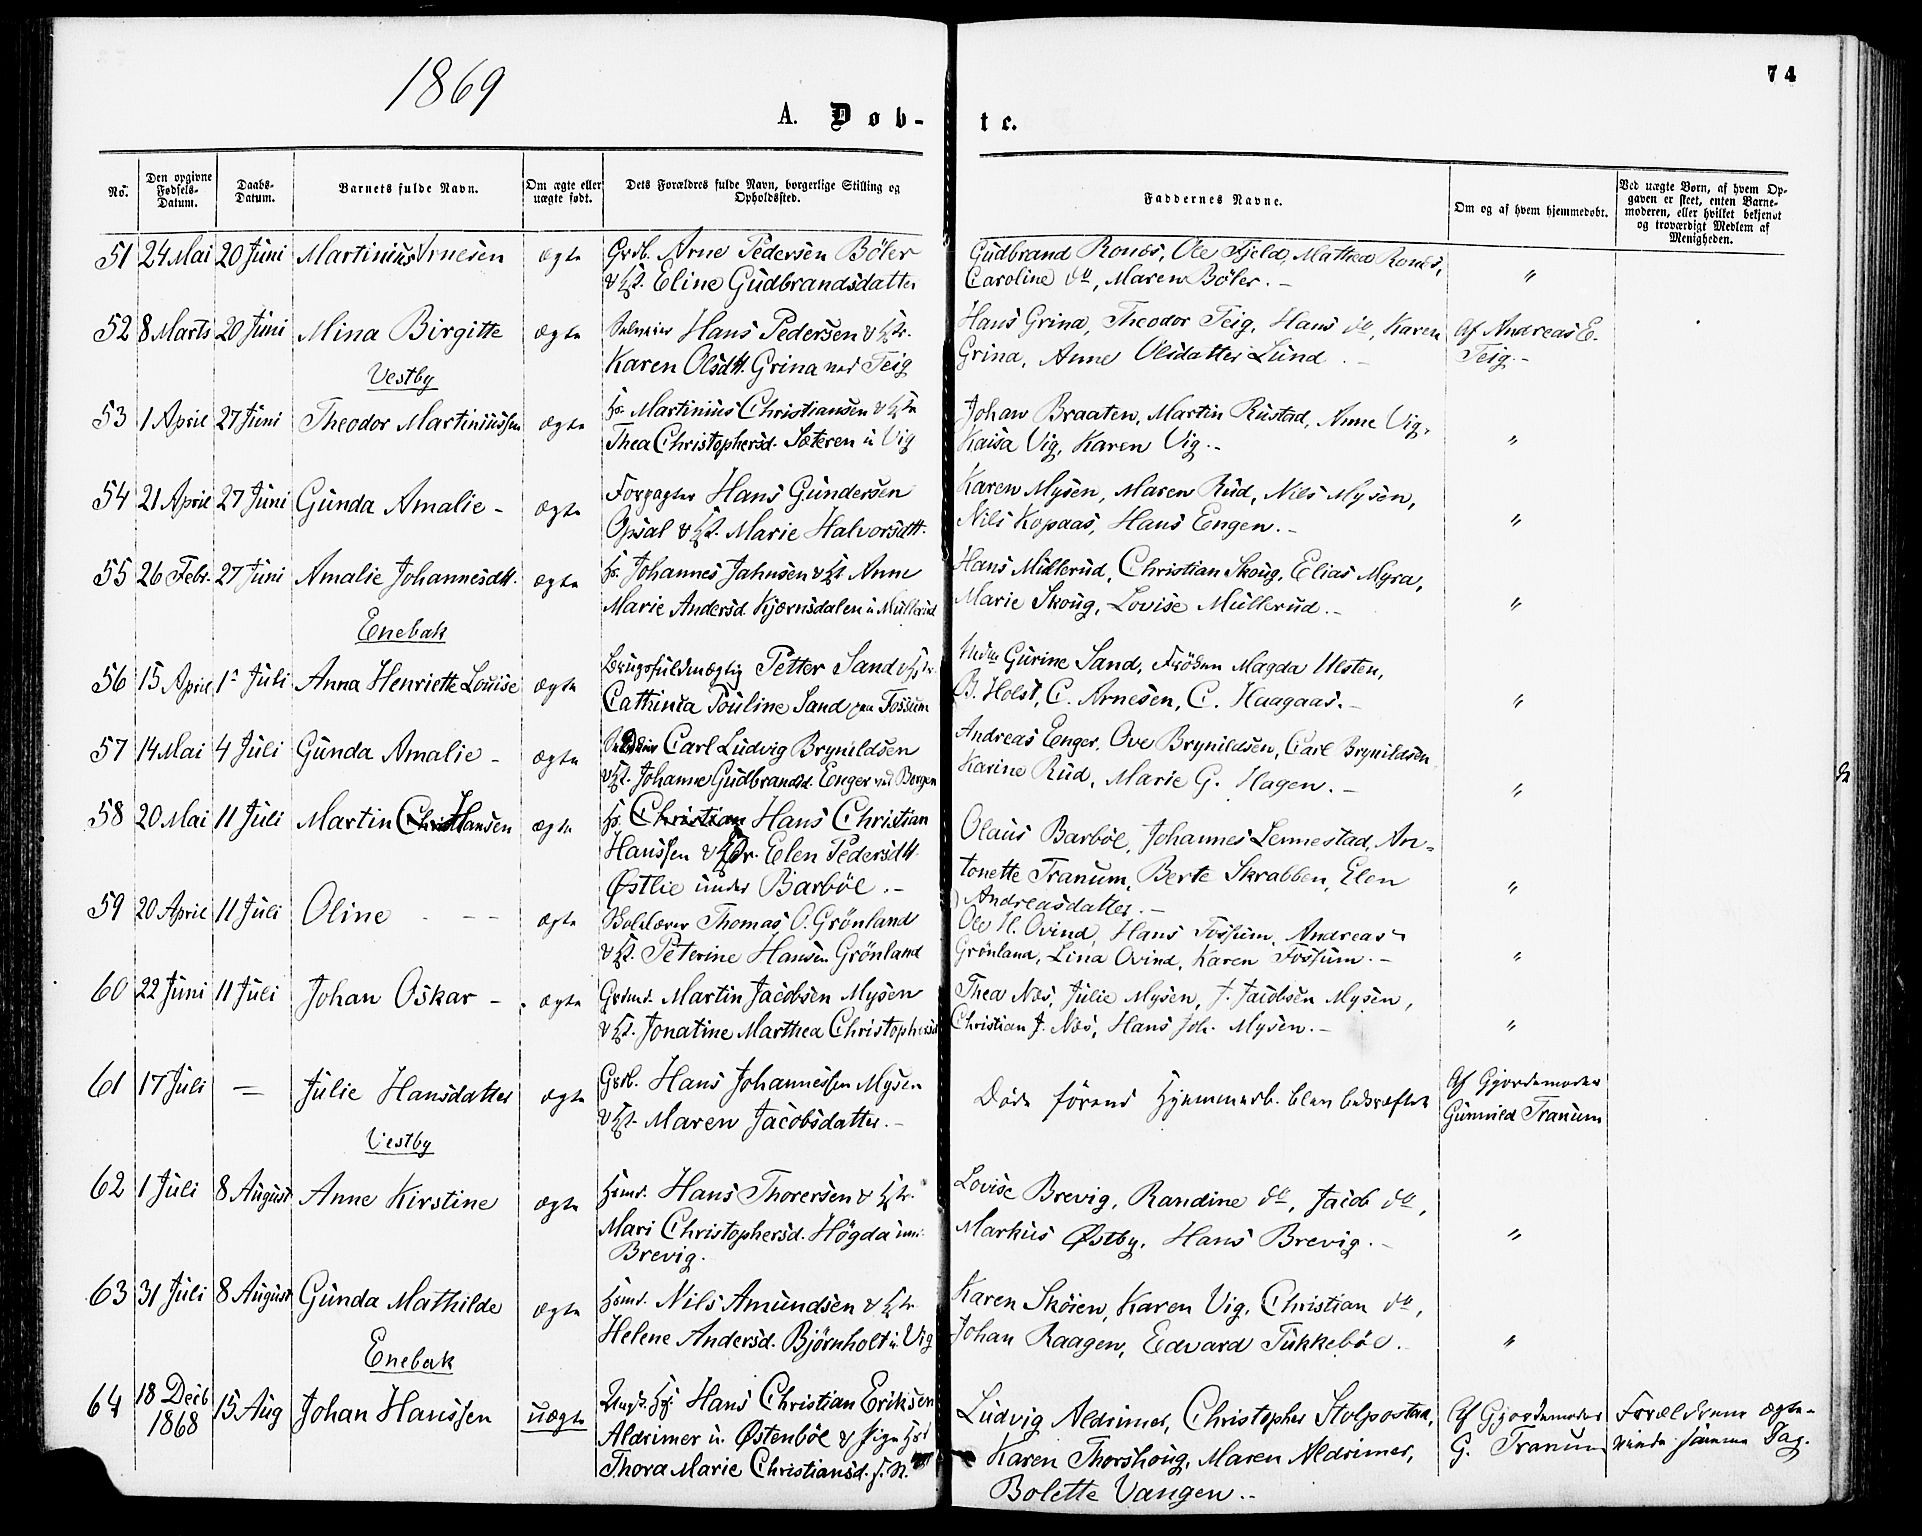 1869
74
A. Døb-te.
No. Den opgivne Fødsels-Datum. Daabs-Datum. Barnets fulde Navn. Om ægte eller uægte født. Dets Forældres fulde Navn, borgerlige Stilling og Opholdssted. Faddernes Navne. Om og af hvem hjemmedøbt. Ved uægte Børn, af hvem Opgaven er skeet, enten Barnemoderen, eller hvilket bekjendt og troværdigt Medlem af Menigheden.
51 24 Mai 20 Juni Martinius Arnesen ægte Grdb. Arne Pedersen Böler Gudbrand Ronæs, Ole Fjeld, Mathea Ronæs, "
& Kst. Eline Gudbrandsdatter Caroline do, Maren Böler. -
52 8 Marts 20 Juni Mina Birgitte ægte Hans Pedersen & Hans Grina, Theodor Teig, Hans do, Karen Af Andreas E.
Karen Olsdtt. Grina ved Teig Grina, Anne Olsdatter Lund - Teig. -
Vestby
53 1 April 27 Juni Theodor Martiniussen ægte Hs. Martinius Christiansen & Johan Braaten, Martin Rustad, Anne Vig, "
Thea Christophersd. Sæteren u Vig Kaisa Vig, Karen Vig. -
54 21 April 27 Juni Gunda Amalie - ægte Forpagter Hans Gundersen Karen Mysen, Maren Rud, Nils Mysen, "
Opsal & Kst. Marie Halvorsdtt. Nils Kopaas, Hans Engen. -
55 26 Febr. 27 Juni Amalie Johannesdtt. ægte Hs. Johannes Jahnsen & Kst Anne Hans Müllerud, Christian Skoug, Elias Myra, "
Marie Andersd. Kjærnsdalen u Müllerud Marie Skoug, Lovise Müllerud. -
Enebak
56 15 April 1 Juli Anna Henriette Louise ægte Brugsfuldmægtig Petter Sand & Gurine Sand, Frøken Magda Ulsten, "
Cathinca Pouline Sand paa Fossum B. Holst, C. Arnesen, C. Haagaas. -
57 14 Mai 4 Juli Gunda Amalie - ægte Carl Ludvig Brynildsen Andreas Enger, Ove Brynildsen, Carl Brynildsen "
& Kst. Johanne Gudbrandsd. Enger ved Borgen Karine Rud, Marie G. Hagen. -
58 20 Mai 11 Juli Martin Hansen ægte Hs. Christian Hans Christian Olaus Barböl, Johannes Lennestad, An- "
Hanssen & Elen Pedersdtt. tonette Tranum, Berte Skrabben, Elen
Østlie under Barböl. - Andreasdatter. -
59 20 April 11 Juli Oline - - - ægte Thomas O. Grönland Ole H. Ovind, Hans Fossum, Andreas "
& Kst. Peterine Hansen Grönland Grönland, Lina Ovind, Karen Fossum. -
60 22 Juni 11 Juli Johan Oskar - ægte Grdmd. Martin Jacobsen Mysen Thea Næs, Julie Mysen, J. Jacobsen Mysen, "
& Kst. Jonatine Marthea Christophersd Christian J. Næs, Hans Joh. Mysen. -
61 17 Juli = Julie Hansdatter ægte Grdb. Hans Johannessen Mysen Döde förend Hjemmedb. blev bekræftet Af Gjordemoder
& Kst. Maren Jacobsdatter. - Gunnild Tranum
Vestby
62 1 Juli 8 August Anne Kirstine ægte Hsmd. Hans Thorersen & Lovise Brevig, Randine do, Jacob do, "
Mari Christophersd. Högda un: Markus Østby, Hans Brevig. -
Brevig.
63 31 Juli 8 August Gunda Mathilde ægte Hsmd. Nils Amundsen & Karen Sköien, Karen Vig, Christian do, "
Helene Andersd. Björnholt u. Vig Johan Raagen, Edvard Tukkeböl.
Enebak
64 18 Decb 1868 15 Aug Johan Hanssen uægte Ungk. Hans Christian Eriksen Ludvig Aldrimer, Christopher Stolpestad, Af Gjordemoder Forældrene ægte-
Aldrimer u. Østenböl & Pige Karen Thorshoug, Maren Aldrimer, G. Tranum viede samme Dag.
Thora Marie Christiansd. Bolette Vangen. -